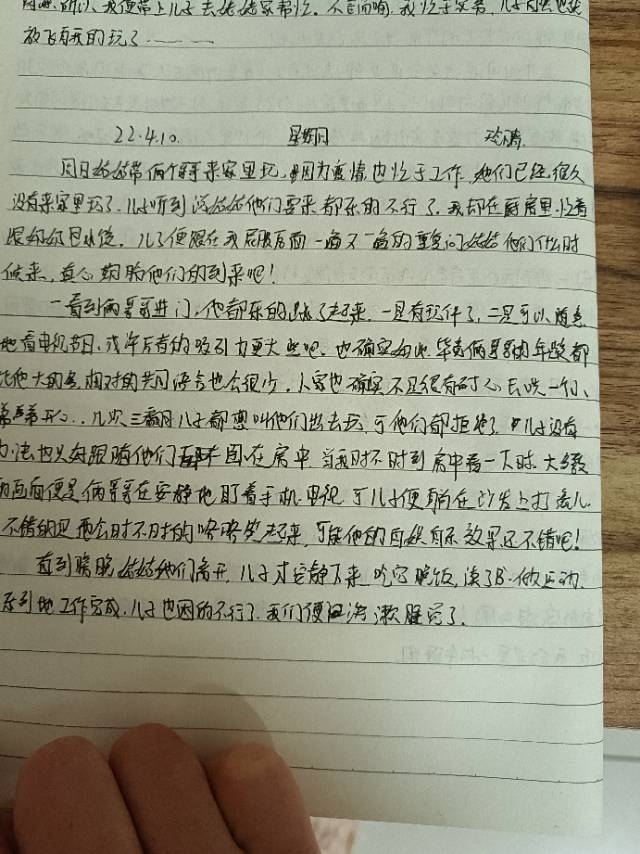 所以,我便带上儿子去姑姑家帮忙。不言而喻,我忙于家务,儿子
放飞自我的玩了……
22.4.10. 星期日 晴
因日姑姑带俩个哥哥来家里玩,因为疫情也忙于工作,她们已经很久
没有来家里玩了,儿子听到说姑姑他们要来都乐的不行了。我却在厨房里忙着
跟奶奶,儿子便跟在我屁股后面一遍又一遍的重复问姑姑他们什么时
候来,真心期盼他们的到来吧!
一看到俩哥哥进门,他都乐的跳了起来,一是有玩伴了,二是可以随意
地看电视节目,或许后者的吸引力更大些吧。也确实如此,毕竟俩哥哥的年龄都
比他大的多,相对的共同语言也会很少,人家也确实不是很有耐心去哄一个
弟弟开心..几次三番儿子都要叫他们出去玩,可他们都拒绝了,儿子没有
办法也只有跟随他们囚在房中,当我时不时到房中看一下时,大多数
的画面便是俩哥哥在安静地盯着手机、电视,可儿子便躺在沙发上打盹儿,
不错的是他会时不时的咯咯笑起来,可能他的自娱自乐效果还不错吧!
直到傍晚姑姑他们离开,儿子才安静下来,吃完晚饭,读了书,做运动
系列的工作完成,儿子也困的不行了,我们便洗漱睡觉了!